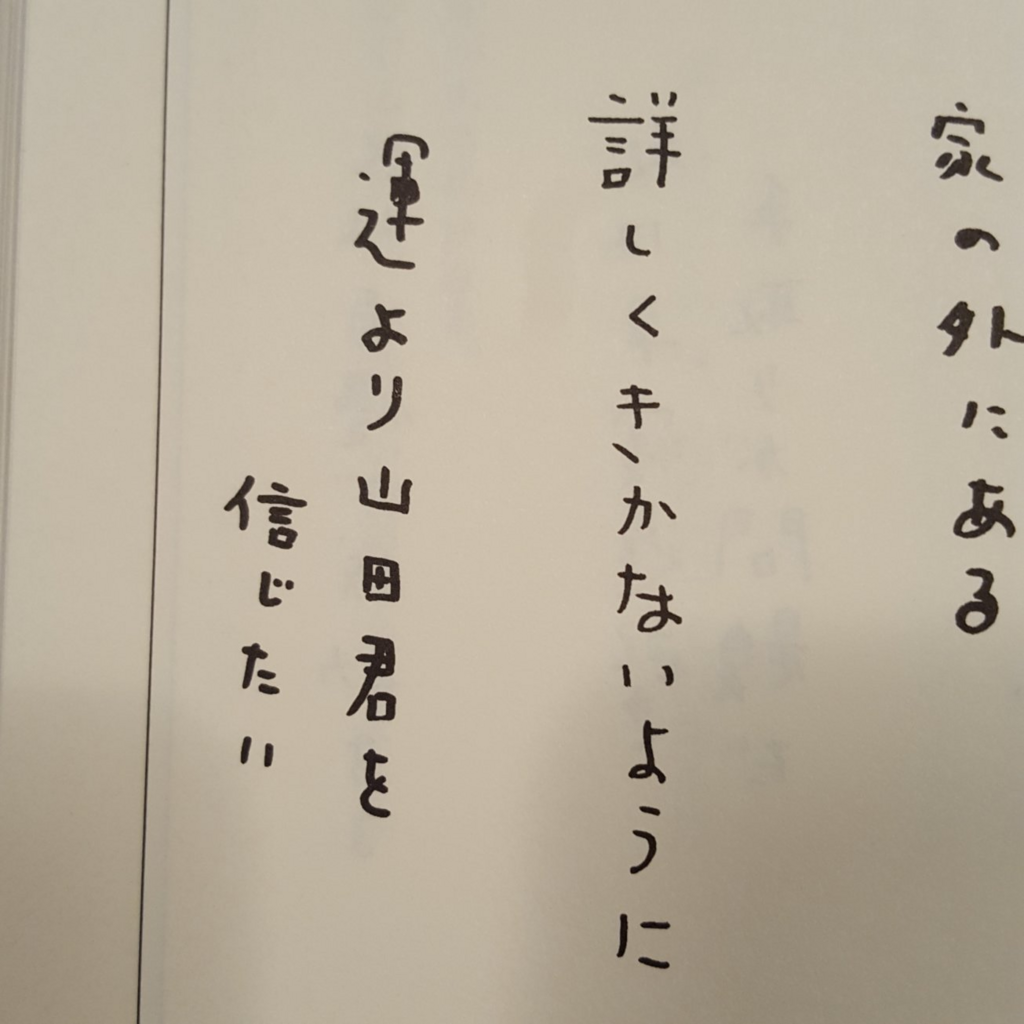 家の外にある
詳しくきかないように
運より山田君を
信じたい